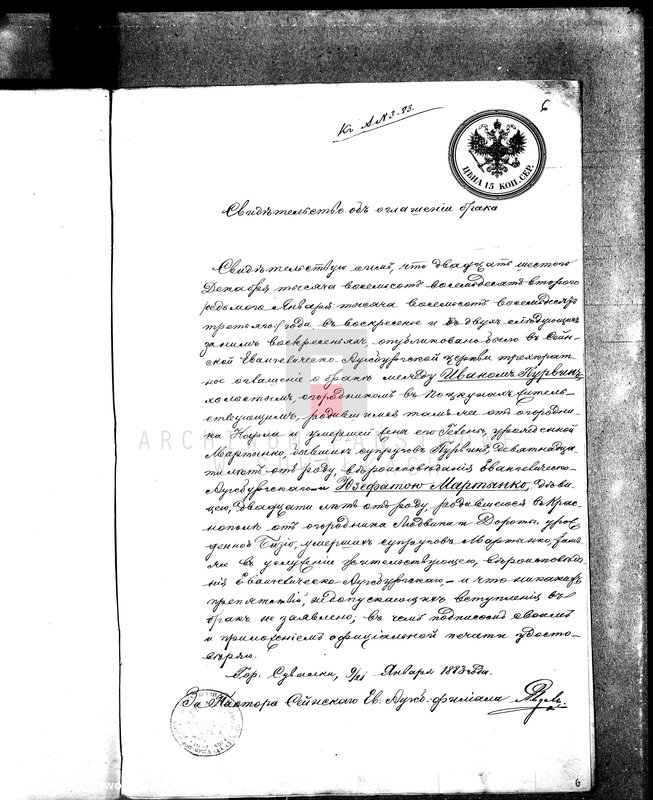 Къ А № 3-83.
6
ЦѢНА 15 КОП. СЕР.
Свидѣтельство объ оглашеніи брака
Свидѣтельствую симъ, что двадцать шестого
Декабря тысяча восемсотъ восемдесятъ второго
седьмого Января тысяча восемсотъ восемдесятъ
третьяго года въ воскресеніе и въ двухъ слѣдующихъ
за нимъ воскресеньяхъ, опубликовано было въ Сейн-
ской Евангелическо-Аугсбургской церкви трехкрат-
ное оглашеніе о бракѣ между Иваномъ Пурвинъ,
холостымъ, огородникомъ въ житель-
ствующимъ, родившимся тамъ же отъ огородни-
ка Карла и умершей жены его Гелены, урожденной
Мартыно, бывшихъ супруговъ Пурвинъ, девятнадца-
ти лѣтъ отъ роду, вѣроисповѣданія евангелическо-
Аугсбургскаго и Юзефатою Мартанко, дѣви-
цею, двадцати лѣтъ отъ роду, родившеюся въ Крас-
нополѣ отъ огородника Людвика и Дороты, урож-
денной умершихъ супруговъ Мартанко, тамъ
же въ услуженіи жительствующею, вѣроисповѣда-
нія Евангелическо-Аугсбургскаго, - и что никакихъ
препятствій, недопускающихъ вступленія въ
бракъ не заявлено; въ чемъ подписомъ своимъ
и приложеніемъ официальной печати удосто-
вѣряю.
Гор. Сувалки, 9/21 Января 1883 года.
За Пастора Сейнскаго Ев. Аугсб. филиала
6